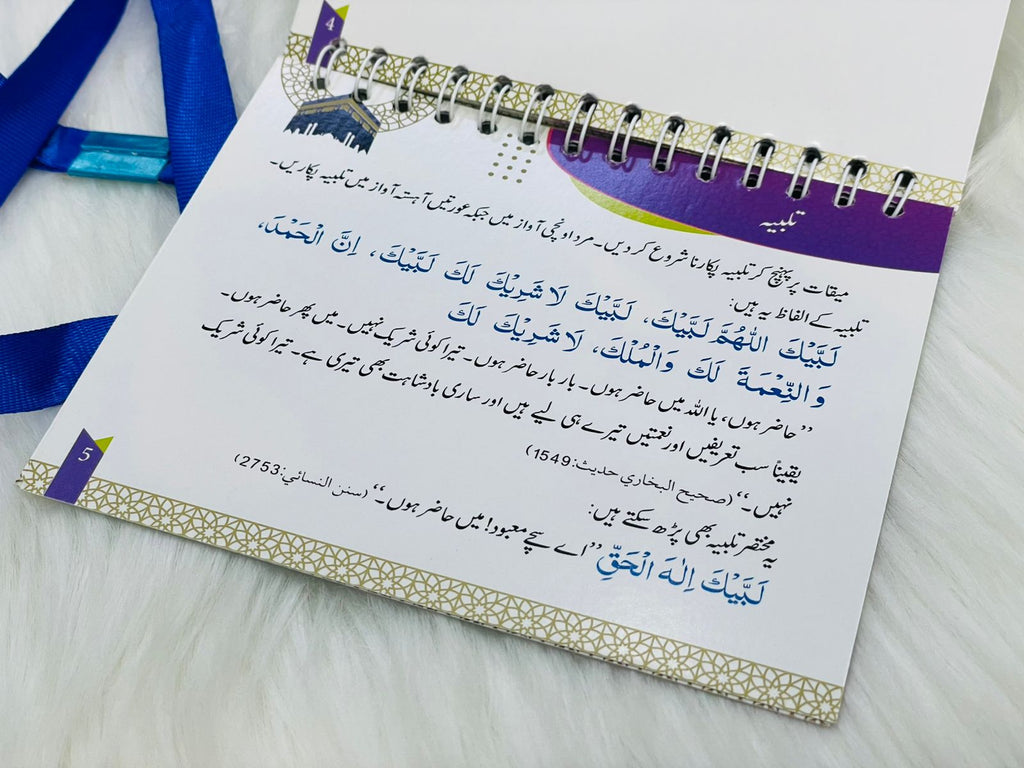 4
تلبیہ
میقات پر پہنچ کر تلبیہ پکارنا شروع کر دیں۔ مرد اونچی آواز میں جبکہ عورتیں آہستہ آواز میں تلبیہ پکاریں۔
تلبیہ کے الفاظ یہ ہیں:
لَبَّيْكَ اللّٰهُمَّ لَبَّيْكَ، لَبَّيْكَ لَا شَرِيْكَ لَكَ لَبَّيْكَ، اِنَّ الْحَمْدَ،
وَالنِّعْمَةَ لَكَ وَالْمُلْكَ، لَا شَرِيْكَ لَكَ
”حاضر ہوں، یا اللہ میں حاضر ہوں۔ بار بار حاضر ہوں۔ تیرا کوئی شریک نہیں۔ میں پھر حاضر ہوں۔
یقیناً سب تعریفیں اور نعمتیں تیرے ہی لیے ہیں اور ساری بادشاہت بھی تیری ہے۔ تیرا کوئی شریک
نہیں۔“ (صحيح البخاري حدیث:1549)
یہ مختصر تلبیہ بھی پڑھ سکتے ہیں:
لَبَّيْكَ اِلٰهَ الْحَقِّ ”اے سچے معبود! میں حاضر ہوں۔“ (سنن النسائي:2753)
5